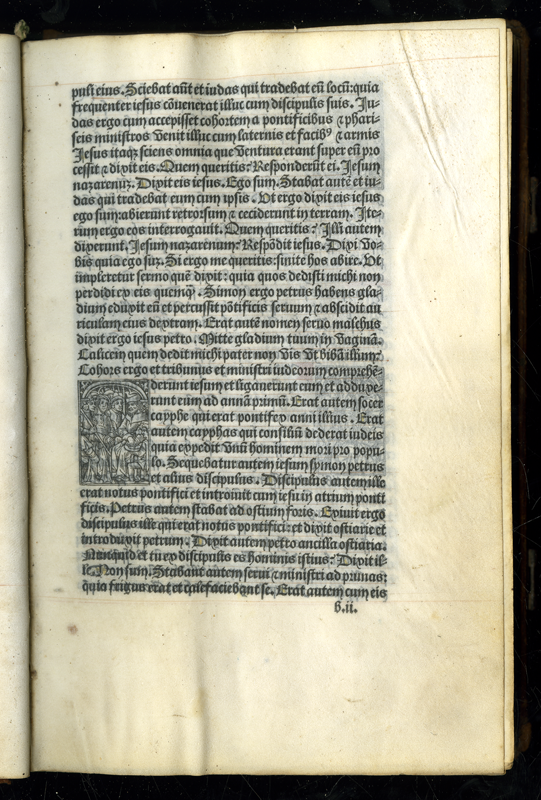 puli eius. Sciebat aūt et iudas qui tradebat eū locū: quia
frequenter iesus cōuenerat illuc cum discipulis suis. Ju-
das ergo cum accepisset cohortem a pontificibus ⁊ phari-
seis ministros venit illuc cum laternis et facibꝰ ⁊ armis
Jesus itaqꝫ sciens omnia que ventura erant super eū pro
cessit ⁊ dixit eis. Quem queritis? Responderūt ei. Jesum
nazarenuꝫ. Dixit eis iesus. Ego sum. Stabat autē et iu-
das qui tradebat eum cum ipsis. Vt ergo dixit eis iesus
ego sum: abierunt retrorsum ⁊ ceciderunt in terram. Ite-
rum ergo eos interrogauit. Quem queritis? Illi autem
dixerunt. Jesum nazarenum? Respōdit iesus. Dixi vo-
bis quia ego suꝫ. Si ergo me queritis: sinite hos abire. Vt
impleretur sermo quē dixit: quia quos dedisti michi non
perdidi ex eis quemqꝫ. Simon ergo petrus habens gla-
dium eduxit eū et percussit pōtificis seruum ⁊ abscidit au
riculam eius dextram. Erat autē nomen seruo malchus
dixit ergo iesus petro. Mitte gladium tuum in vaginā.
Calicem quem dedit michi pater non vis vt bibā illum?
Cohors ergo et tribunus et ministri iudeorum comprehē-
derunt iesum et ligauerunt eum et adduxe-
runt eum ad annā primū. Erat autem socer
cayphe qui erat pontifex anni illius. Erat
autem cayphas qui consiliū dederat iudeis
quia expedit vnū hominem mori pro popu-
lo. Sequebatur autem iesum symon petrus
et alius discipulus. Discipulus autem ille
erat notus pontifici et introiuit cum iesu in atrium ponti
ficis. Petrus autem stabat ad ostium foris. Exiuit ergo
discipulus ille qui erat notus pontifici: et dixit ostiarie et
introduxit petrum. Dixit autem petro ancilla ostiaria.
Nunquid et tu ex discipulis es hominis istius? Dixit il-
le. Non sum. Stabant autem serui ⁊ ministri ad prunas:
quia frigus erat et calefaciebant se. Erat autem cum eis
b.ii.